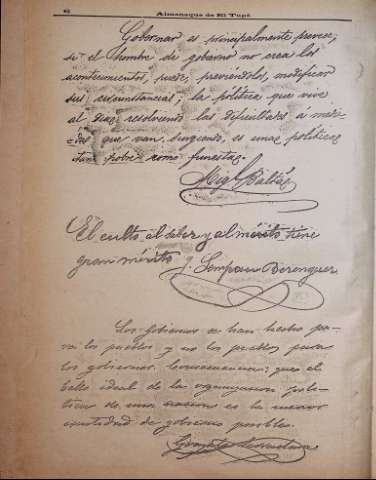 62
Almanaque de El Tupé
Gobernar es principalmente preveer,
si el hombre de gobierno no crea los
acontecimientos, puede, previendolos, modificar
sus circunstancias; la política que vive
al dia, resolviendo las dificultades á medi-
das que van surgiendo, es una política
tan pobre como funesta.
El culto al deber y al mérito, tiene
gran mérito
J. Lompau Berenguer
Los Gobiernos se han hecho pa-
ra los pueblos y no los pueblos para
los gobiernos. que el
bello ideal de la organizacion poli-
tica de una nacion es la menor
cantidad de gobierno posible.